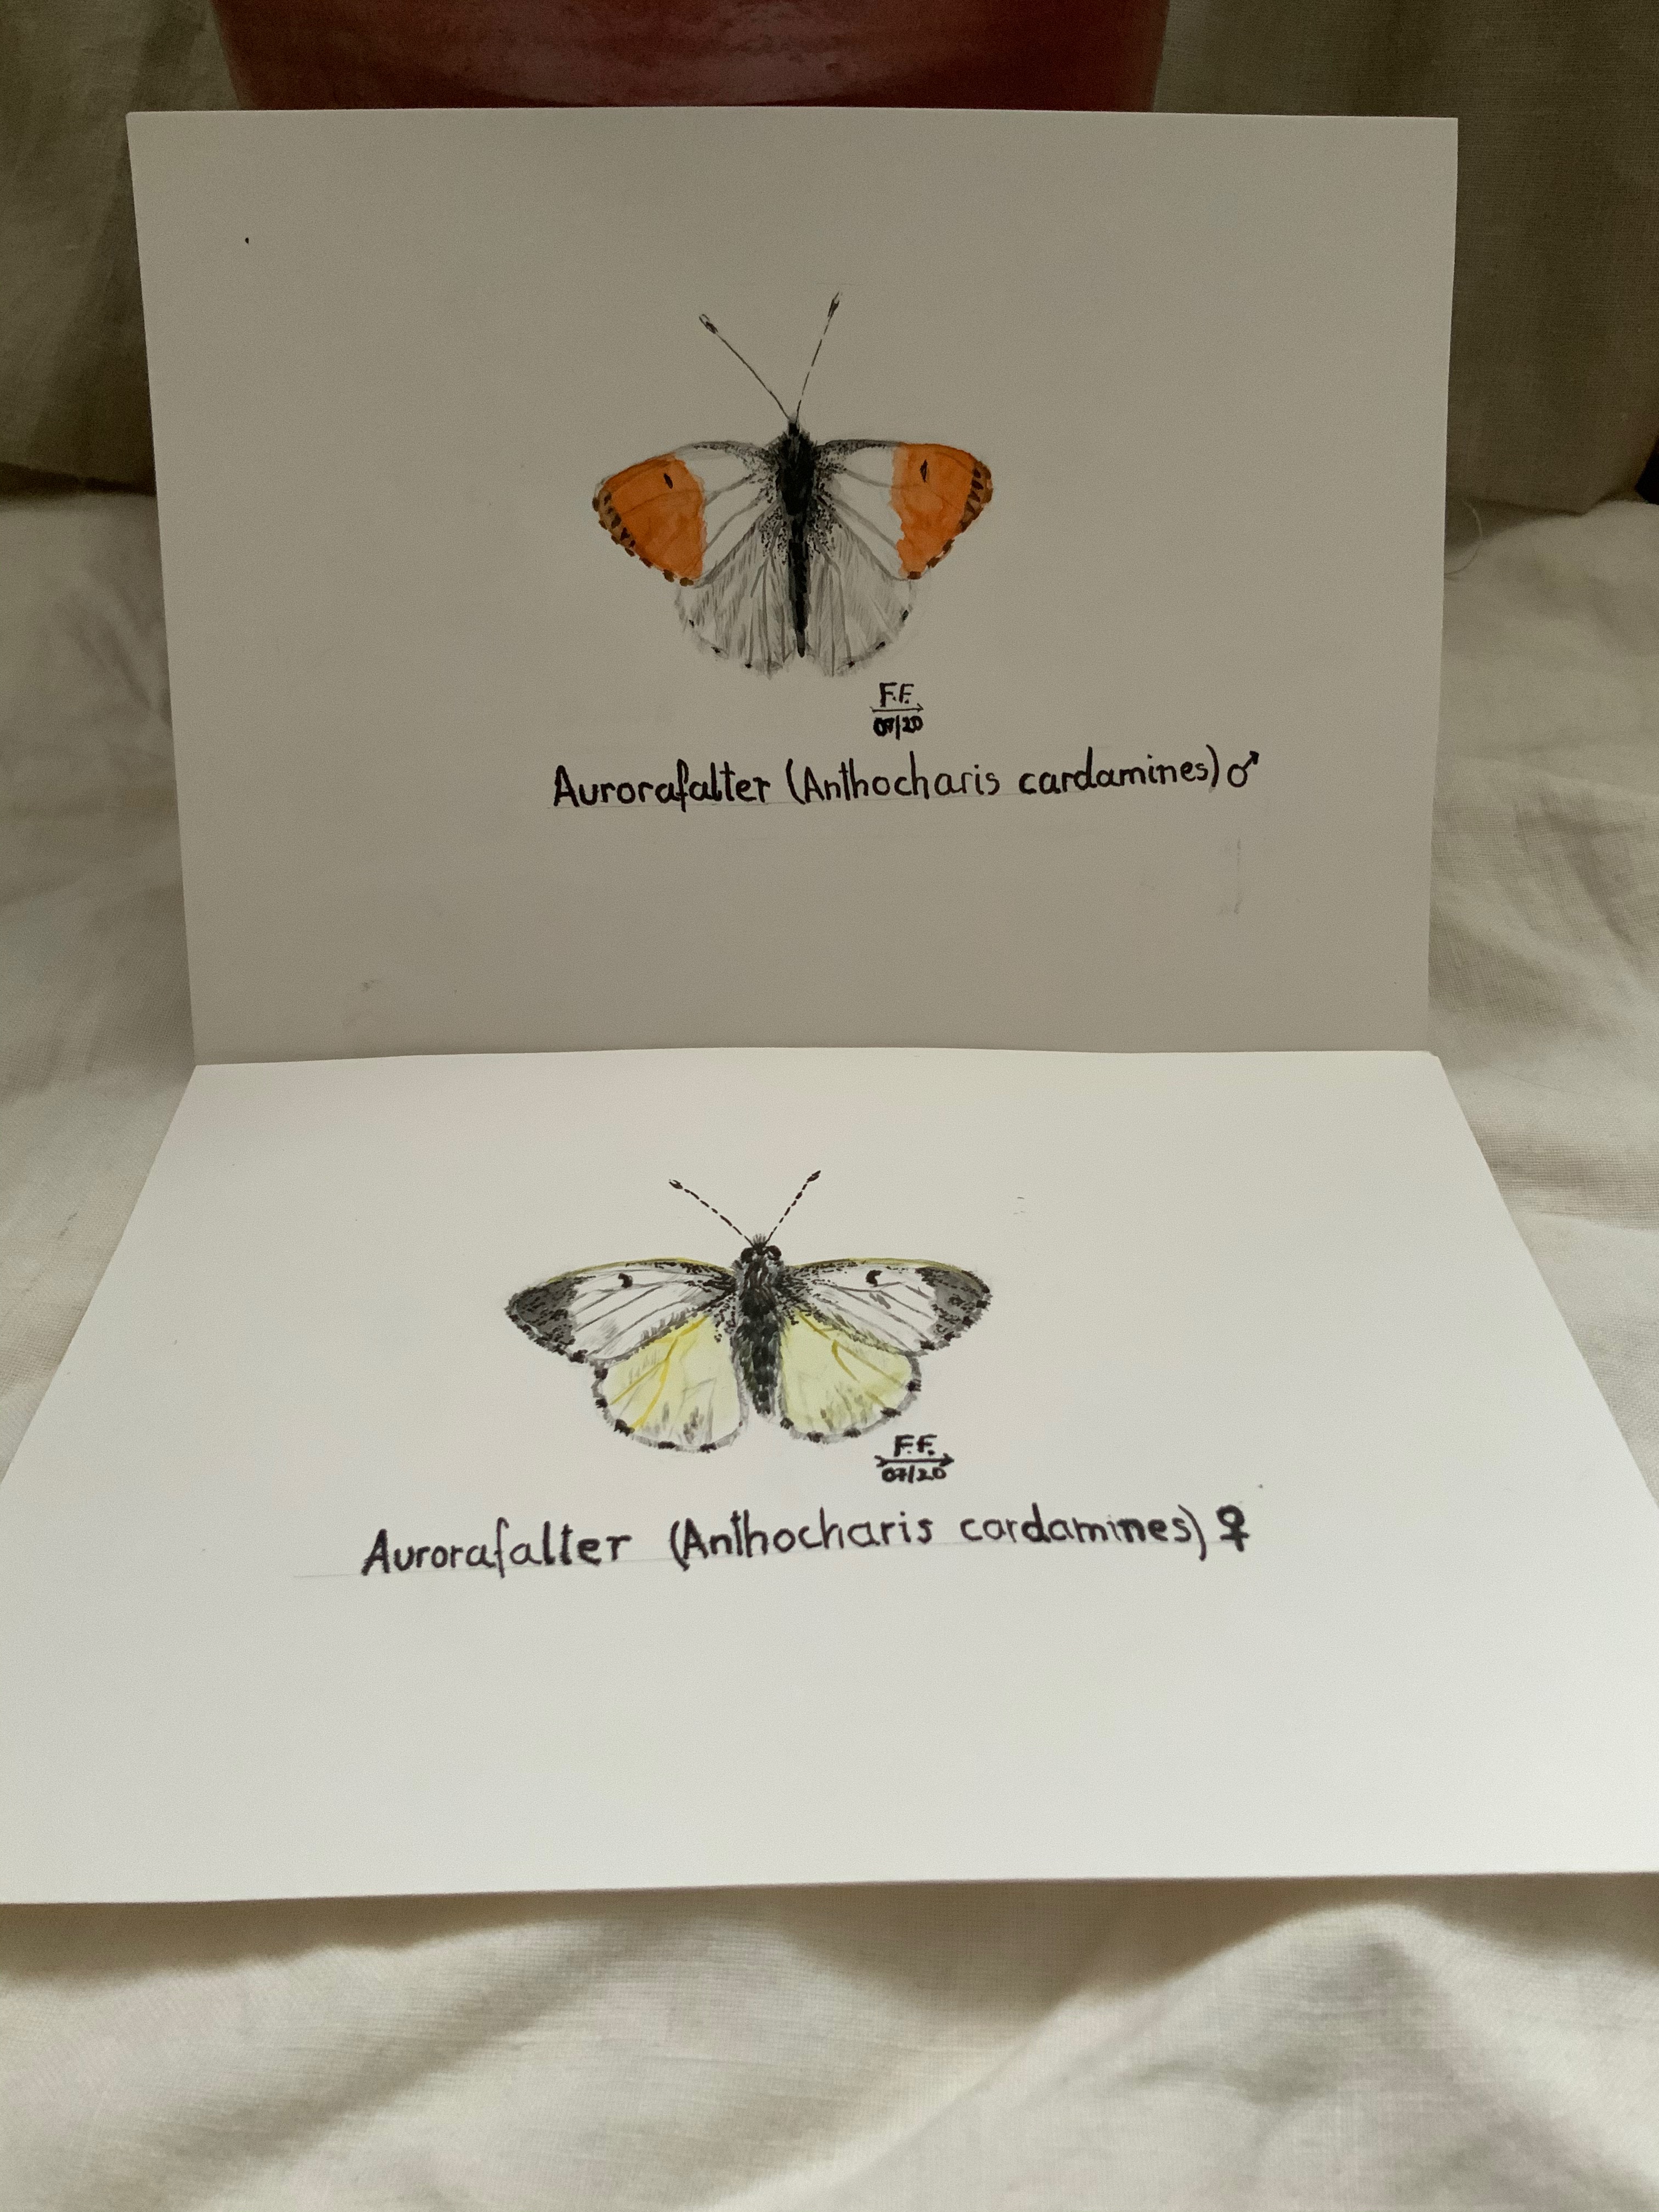 F.F.
07/20
Aurorafalter (Anthocharis cardamines) ♂
F.F.
07/20
Aurorafalter (Anthocharis cardamines) ♀